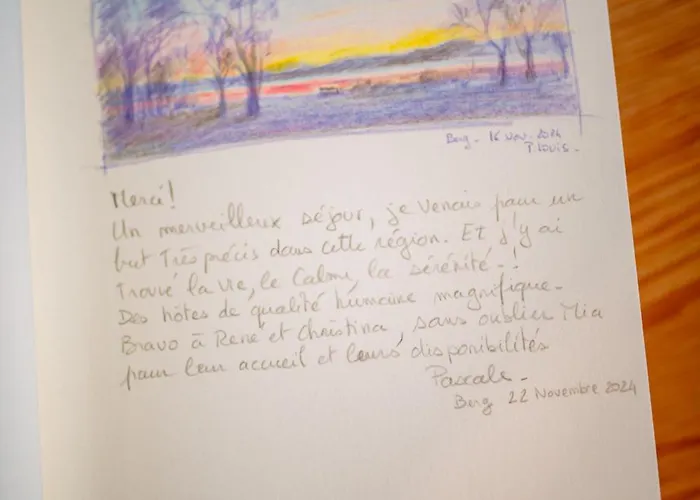 Berg. 16 Nov. 2024
P Louis.
Merci!
Un merveilleux séjour, je venais pour un
but Très précis dans cette région. Et j'y ai
Trouvé la vie, le Calme, la sérénité-!
Des hôtes de qualité humaine magnifique-
Bravo à René et Christina, sans oublier Mia
pour leur accueil et leurs disponibilités
Pascale-
Berg 22 Novembre 2024